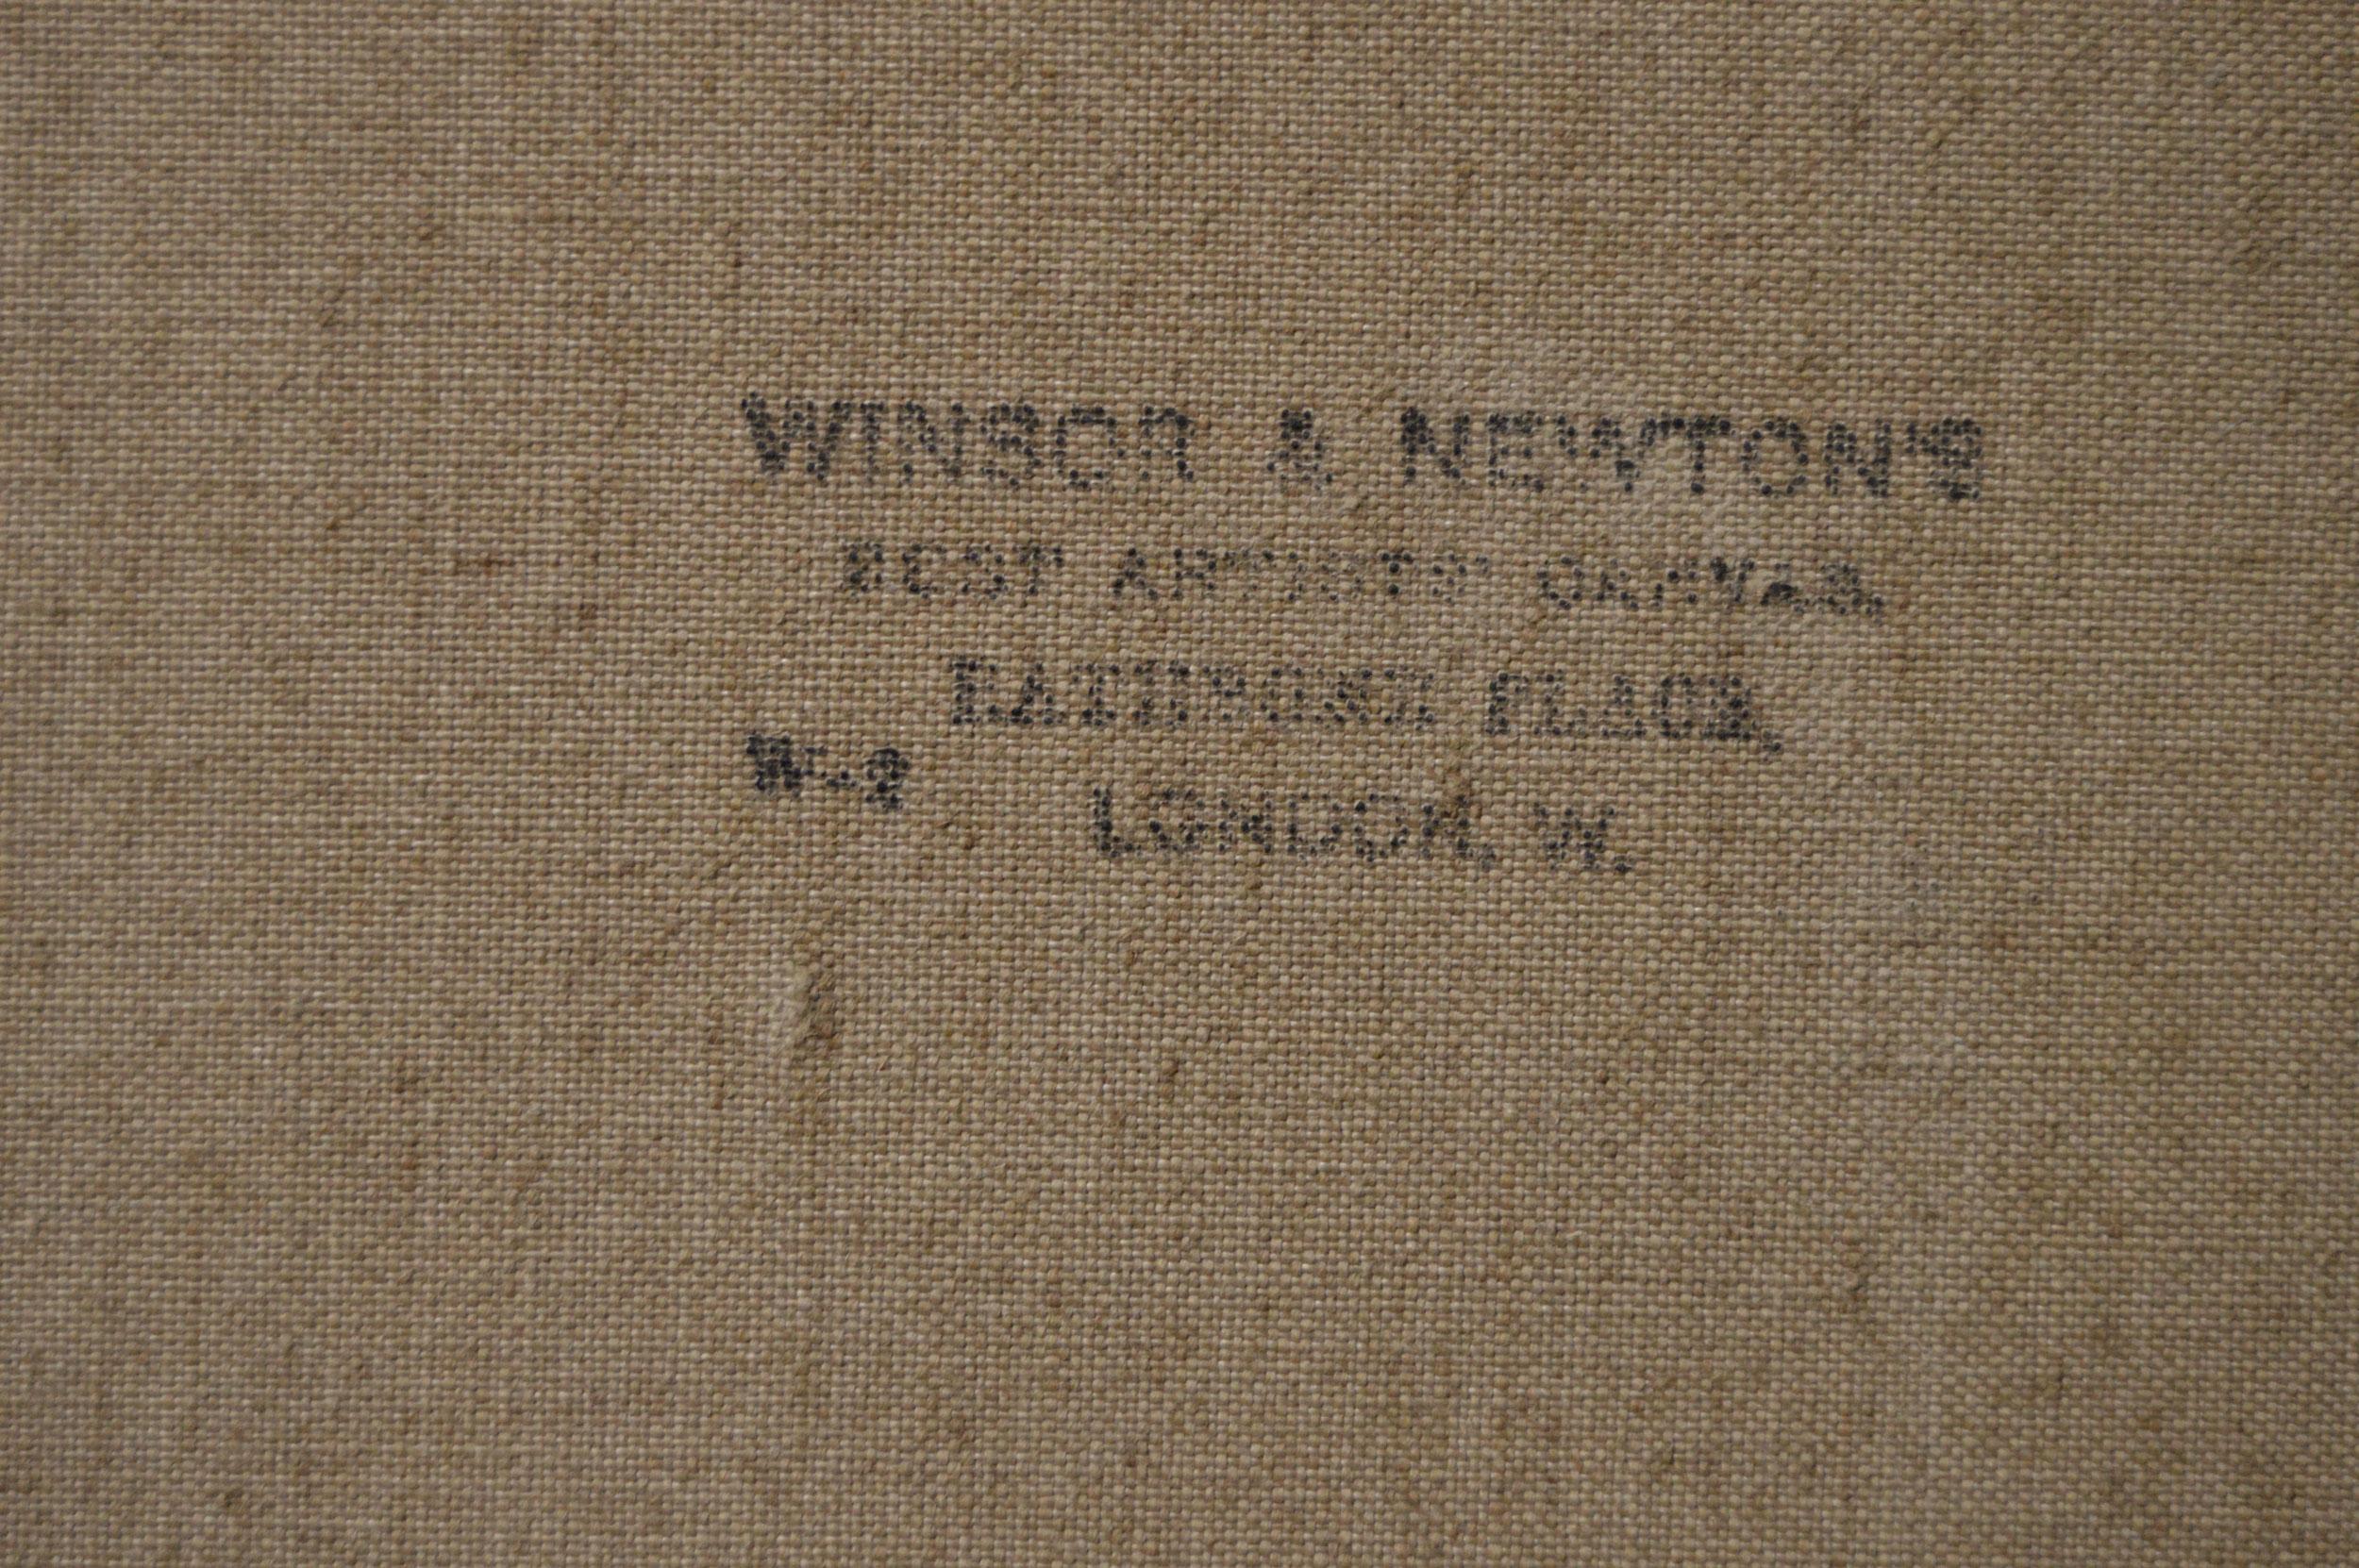 WINSOR & NEWTON'S
BEST ARTISTS' CANVAS,
RATHBONE PLACE,
LONDON, W.